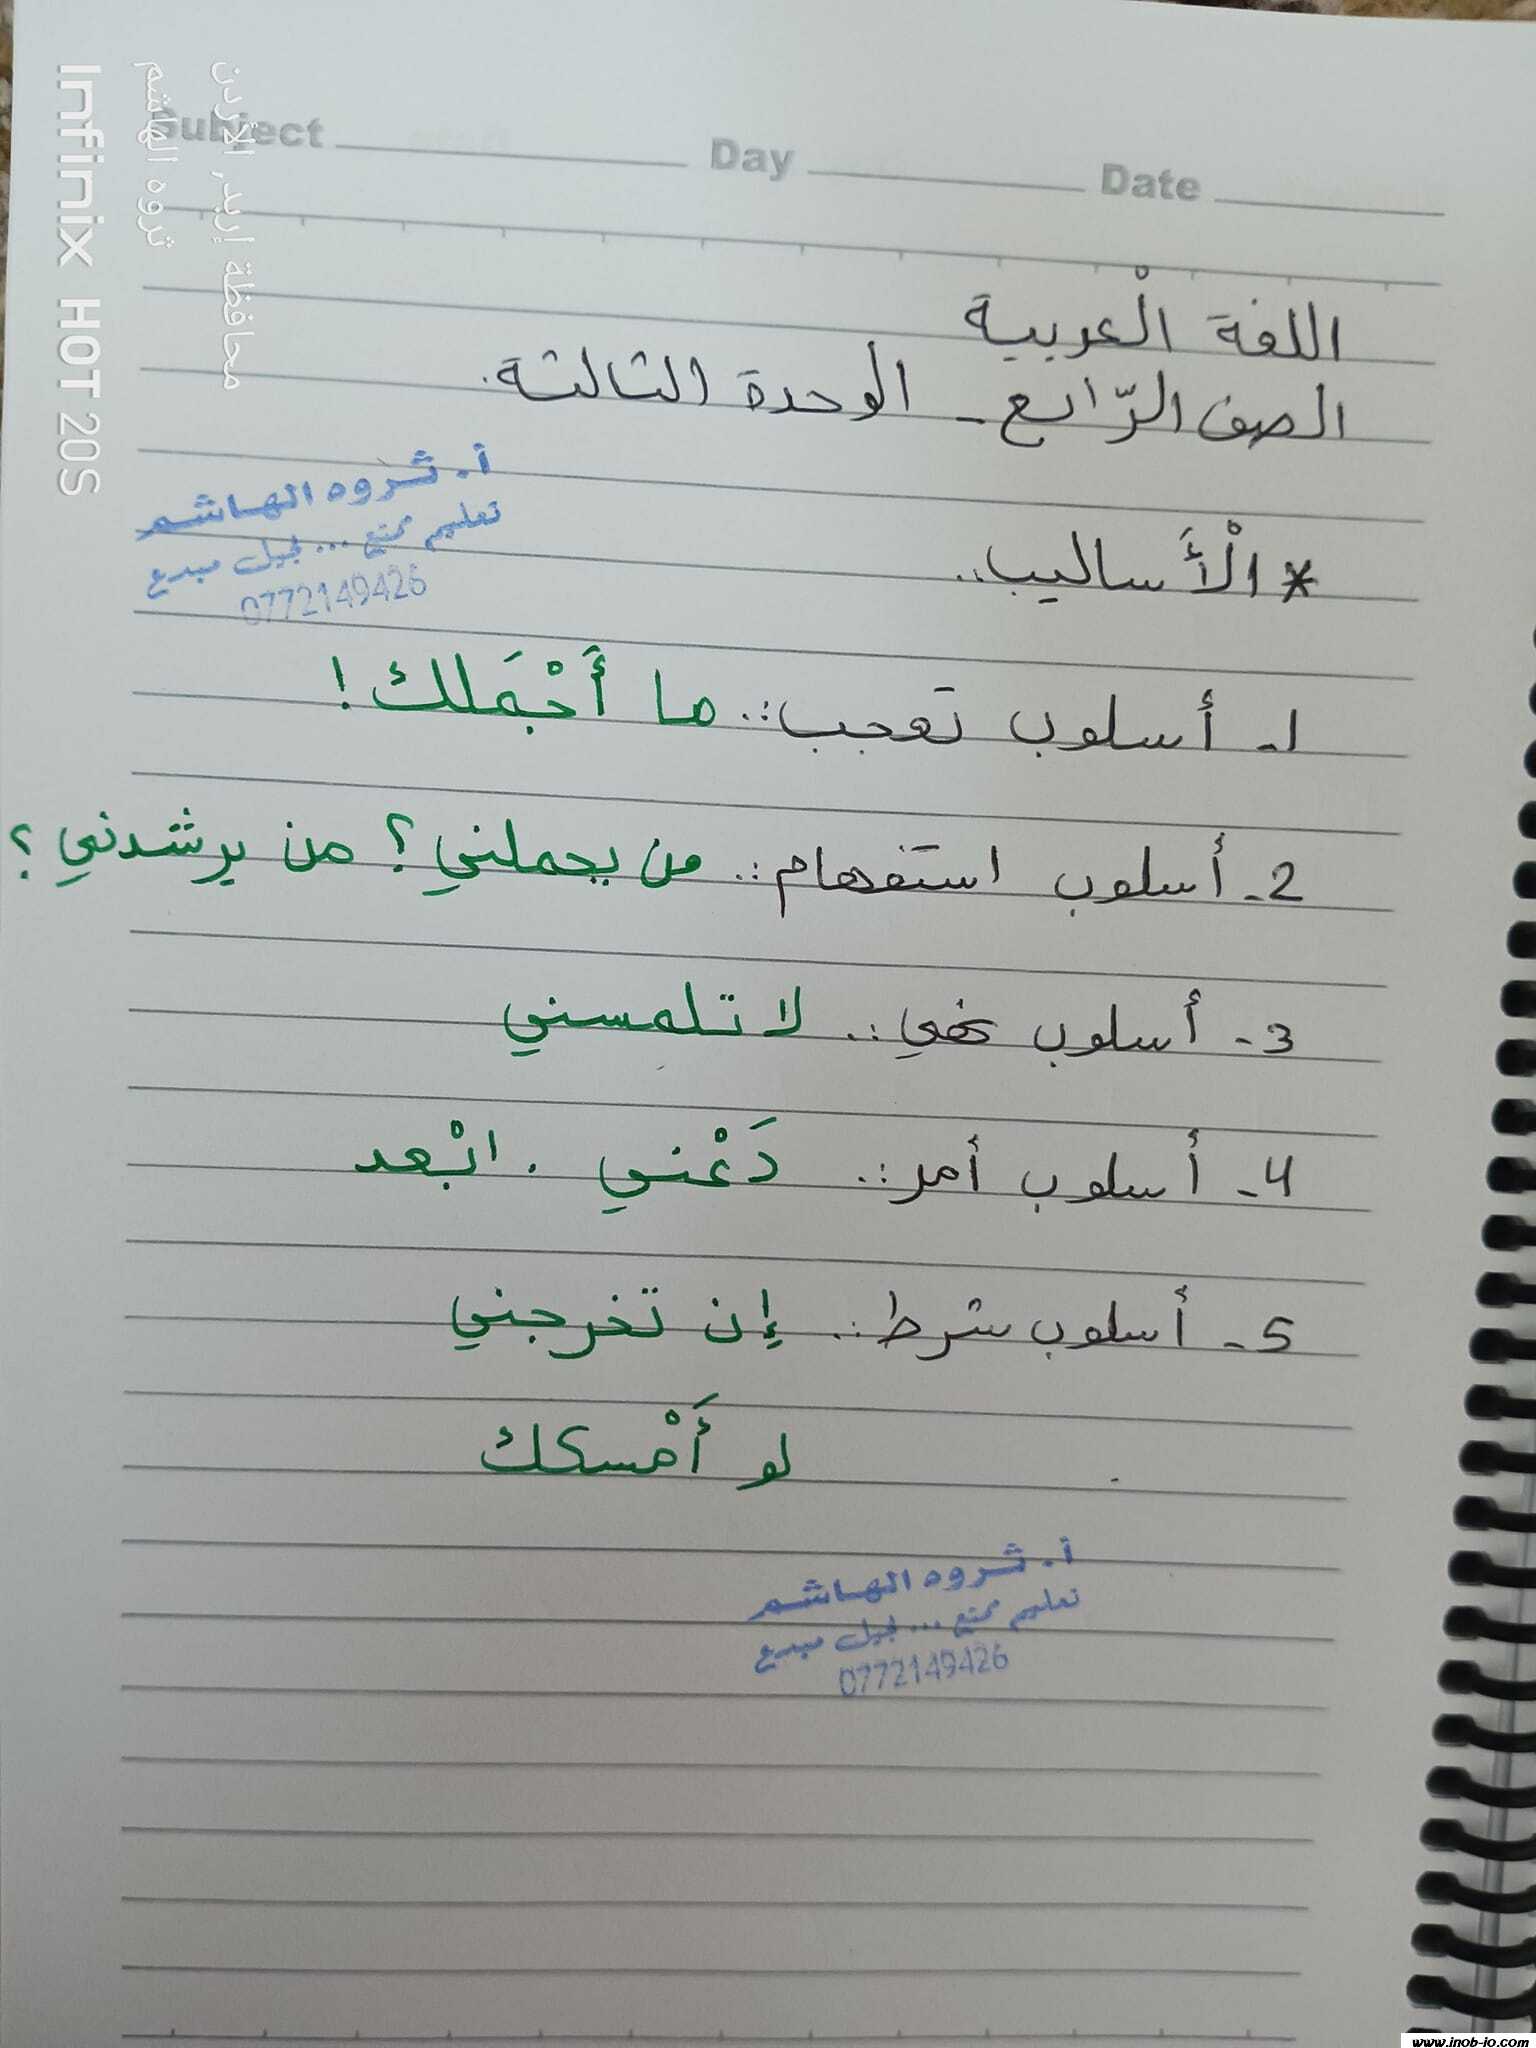 Subject Day Date
محافظة إربد, الأردن
ثروه الهاشم
Infinix HOT 20S
اللغة الْعربية
الصف الرّابع - الوحدة الثالثة.
أ. ثروه الهاشم
تعليم ممتع ... لجيل مبدع
0772149426
* الْأَساليب..
1- أسلوب تَعجب:. ما أَجْمَلك!
2- أسلوب استفهام:. من يحملني؟ من يرشدني؟
3- أسلوب نهي:. لا تلمسني
4- أسلوب أمر:. دَعْني . ابْعد
5- أسلوب شرط:. إن تخرجني
لو أَمْسكك
أ. ثروه الهاشم
تعليم ممتع ... لجيل مبدع
0772149426
www.jnob-jo.com